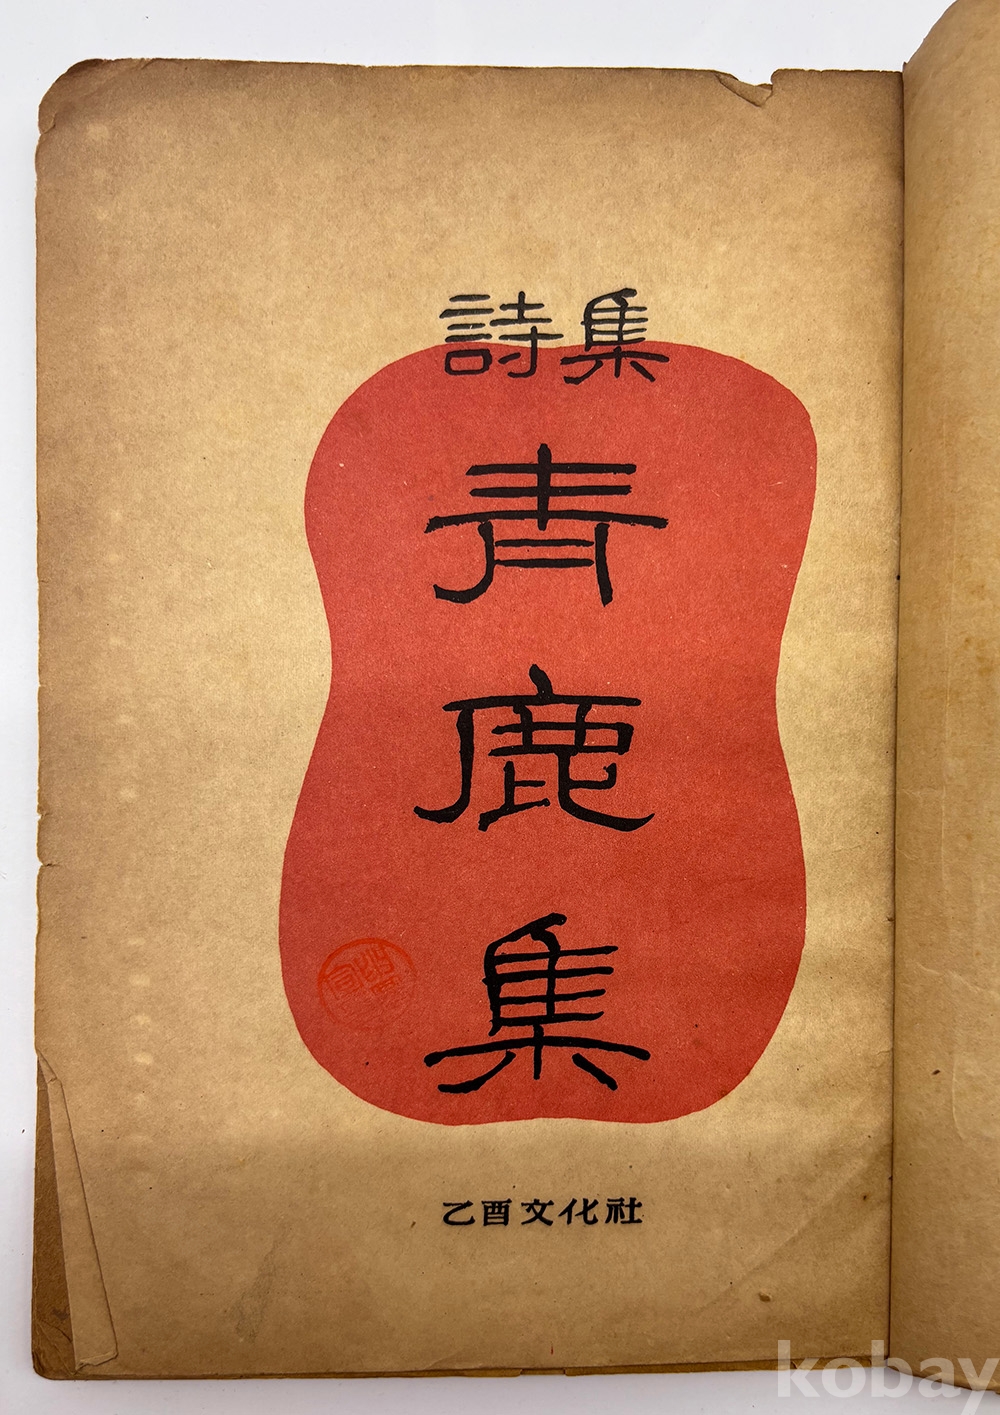 詩集
青
鹿
集
乙酉文化社
kobay